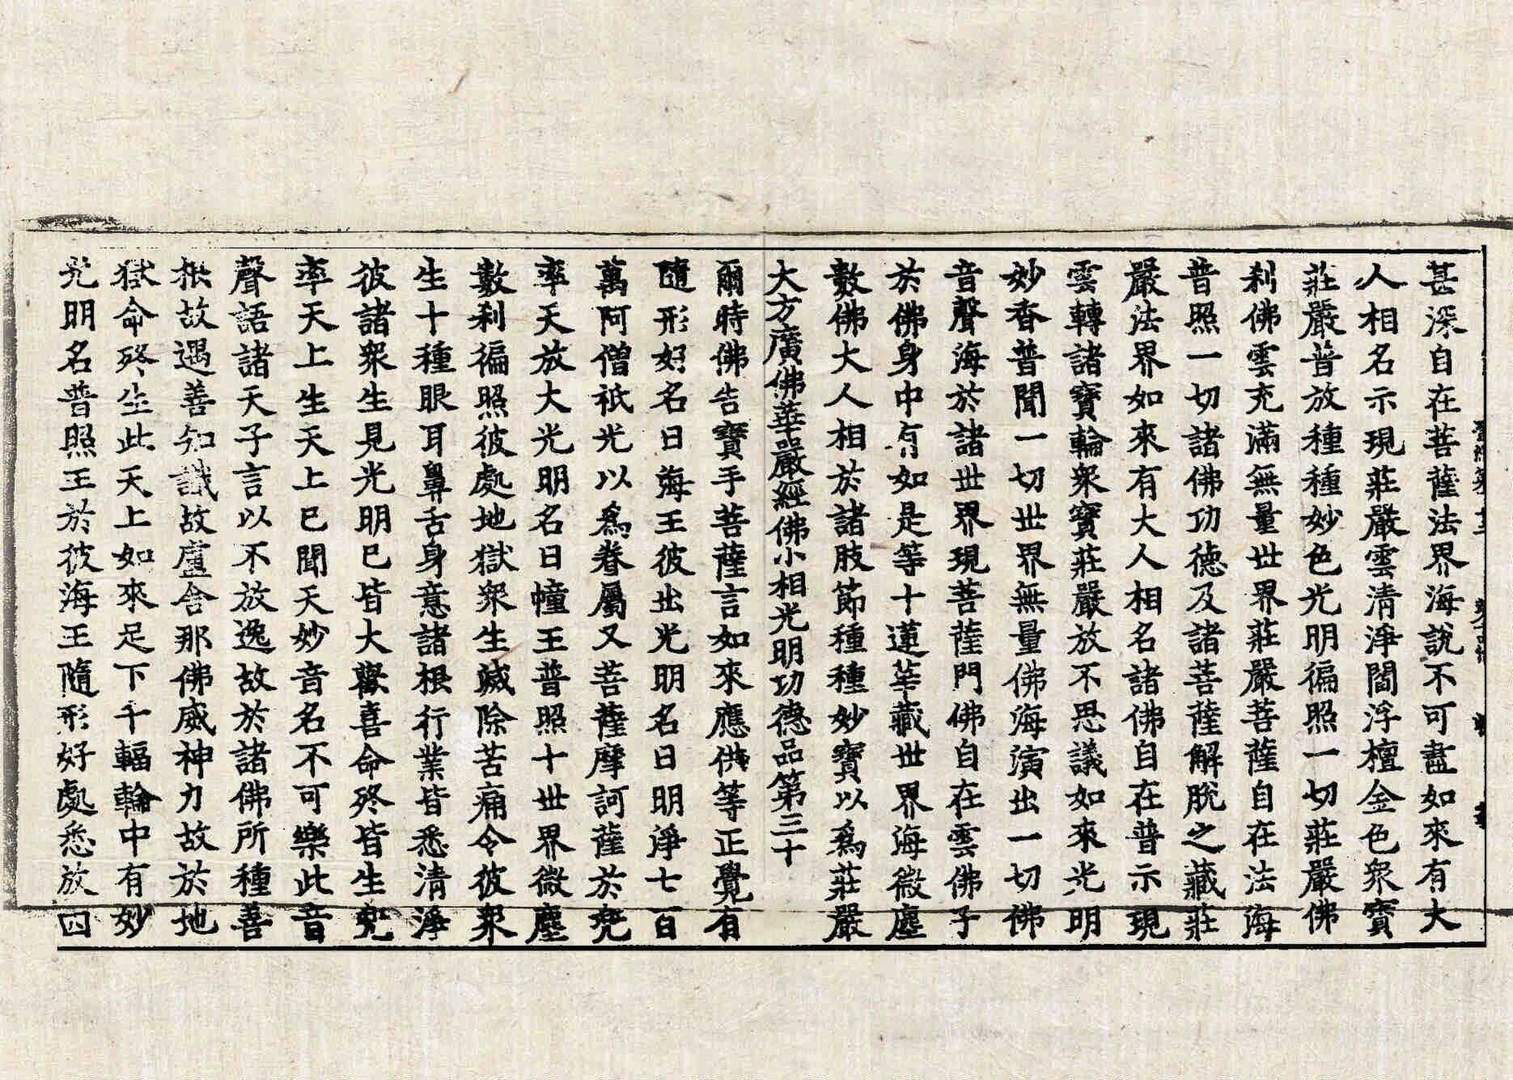 甚深自在菩薩法界海說不可盡如來有大
人相名示現莊嚴雲清淨閻浮檀金色眾寶
莊嚴普放種種妙色光明徧照一切莊嚴佛
刹佛雲充滿無量世界莊嚴菩薩自在法海
普照一切諸佛功德及諸菩薩解脫之藏莊
嚴法界如來有大人相名諸佛自在普示現
雲轉諸寶輪眾寶莊嚴放不思議如來光明
妙香普聞一切世界無量佛海演出一切佛
音聲海於諸世界現菩薩門佛自在雲佛子
於佛身中有如是等十蓮華藏世界海微塵
數佛大人相於諸肢節種種妙寶以爲莊嚴
大方廣佛華嚴經佛小相光明功德品第三十
爾時佛告寶手菩薩言如來應供等正覺有
隨形好名曰海王彼出光明名曰明淨七百
萬阿僧祇光以爲眷屬又菩薩摩訶薩於兜
率天放大光明名曰幢王普照十世界微塵
數刹徧照彼處地獄眾生滅除苦痛令彼眾
生十種眼耳鼻舌身意諸根行業皆悉清淨
彼諸眾生見光明已皆大歡喜命終皆生兜
率天上生天上已聞天妙音名不可樂此音
聲語諸天子言以不放逸故於諸佛所種善
根故遇善知識故盧舍那佛威神力故於地
獄命終生此天上如來足下千輻輪中有妙
光明名普照王於彼海王隨形好處悉放四